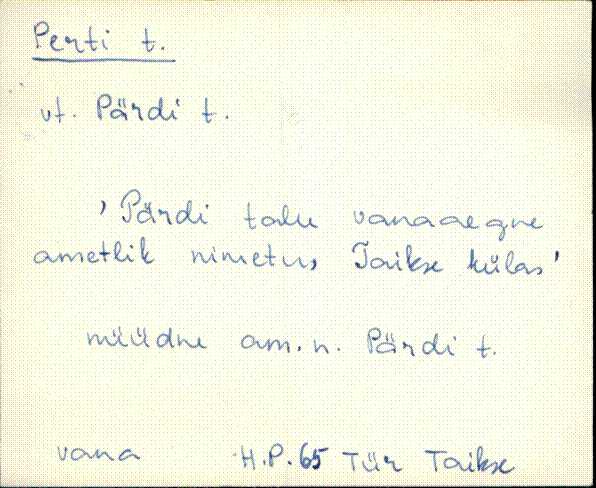 Perti t.
vt. Pärdi t.
'Pärdi talu vanaaegne
ametlik nimetus, Taikse külas'
müüdne am. n. Pärdi t.
vana H.P. 65 Tür Taikse